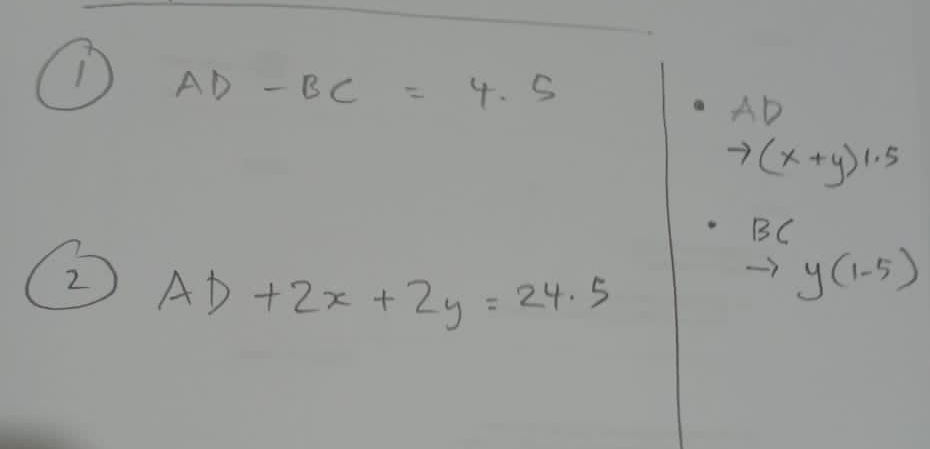 ① AD - BC = 4.5
② AD + 2x + 2y = 24.5
• AD
→ (x + y) 1.5
• BC
→ y (1-5)